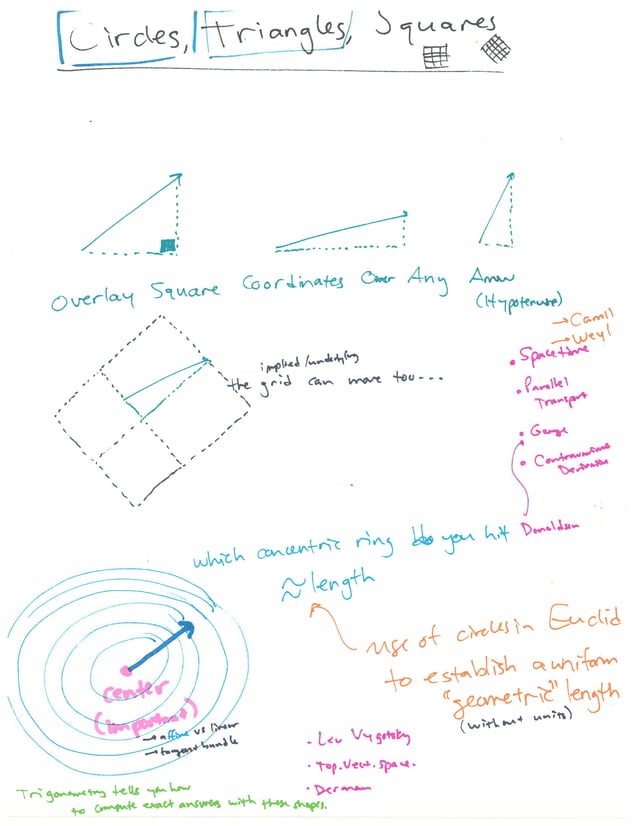 Circles, Triangles, Squares
Overlay Square Coordinates Over Any Arrow
(Hypotenuse)
implied/underlying
the grid can move too...
→
→ Weyl
• Spacetime
• Parallel
Transport
• Gauge
•
Donaldson
which concentric ring do you hit
≈ length
use of circles in Euclid
to establish a uniform
"geometric" length
(without units)
center
(important)
→ affine vs linear
→ tangent bundle
• Lev Vygotsky
• Top. Vect. space.
•
Trigonometry tells you how
to compute exact answers with these shapes.